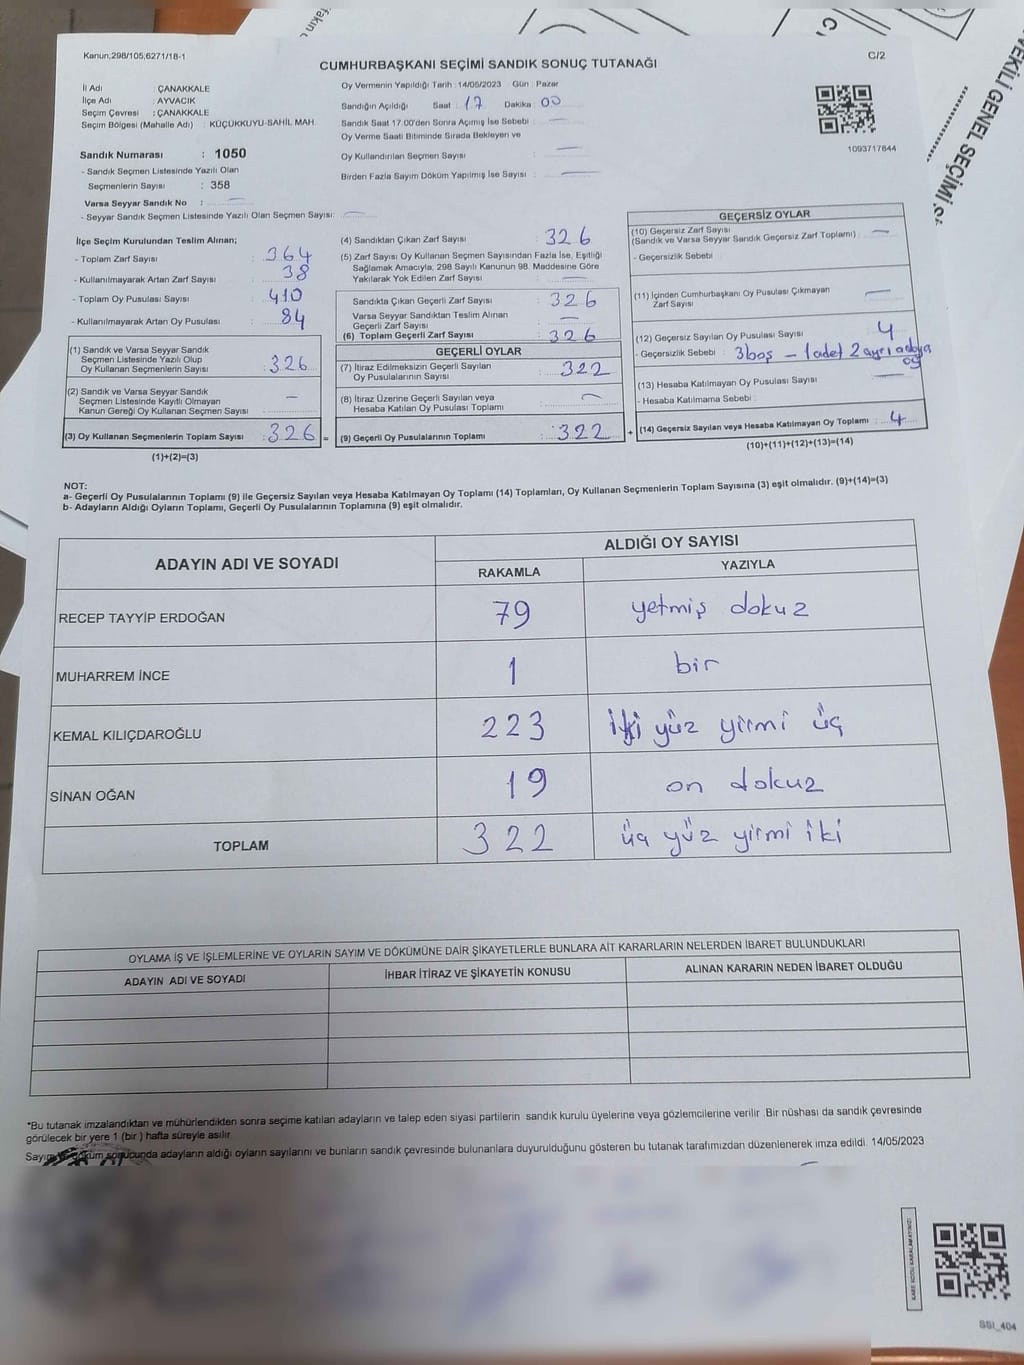 Kanun;298/105,6271/18-1
C/2
CUMHURBAŞKANI SEÇİMİ SANDIK SONUÇ TUTANAĞI
İl Adı : ÇANAKKALE
İlçe Adı : AYVACIK
Seçim Çevresi : ÇANAKKALE
Seçim Bölgesi (Mahalle Adı) : KÜÇÜKKUYU-SAHİL MAH.
Sandık Numarası : 1050
- Sandık Seçmen Listesinde Yazılı Olan
Seçmenlerin Sayısı : 358
Varsa Seyyar Sandık No : —
- Seyyar Sandık Seçmen Listesinde Yazılı Olan Seçmen Sayısı: —
Oy Vermenin Yapıldığı Tarih : 14/05/2023 Gün : Pazar
Sandığın Açıldığı Saat : 17 Dakika : 00
Sandık Saat 17.00'den Sonra Açımış İse Sebebi : —
Oy Verme Saati Bitiminde Sırada Bekleyen ve
Oy Kullandırılan Seçmen Sayısı : —
Birden Fazla Sayım Döküm Yapılmış İse Sayısı : —
1093717644
İlçe Seçim Kurulundan Teslim Alınan;
- Toplam Zarf Sayısı : 364
- Kullanılmayarak Artan Zarf Sayısı : 38
- Toplam Oy Pusulası Sayısı : 410
- Kullanılmayarak Artan Oy Pusulası : 84
(1) Sandık ve Varsa Seyyar Sandık
Seçmen Listesinde Yazılı Olup
Oy Kullanan Seçmenlerin Sayısı : 326
(2) Sandık ve Varsa Seyyar Sandık
Seçmen Listesinde Kayıtlı Olmayan
Kanun Gereği Oy Kullanan Seçmen Sayısı : —
(3) Oy Kullanan Seçmenlerin Toplam Sayısı : 326 =
(1)+(2)=(3)
(4) Sandıktan Çıkan Zarf Sayısı : 326
(5) Zarf Sayısı Oy Kullanan Seçmen Sayısından Fazla İse, Eşitliği
Sağlamak Amacıyla, 298 Sayılı Kanunun 98. Maddesine Göre
Yakılarak Yok Edilen Zarf Sayısı : —
Sandıkta Çıkan Geçerli Zarf Sayısı : 326
Varsa Seyyar Sandıktan Teslim Alınan
Geçerli Zarf Sayısı : —
(6) Toplam Geçerli Zarf Sayısı : 326
GEÇERLİ OYLAR
(7) İtiraz Edilmeksizin Geçerli Sayılan
Oy Pusulalarının Sayısı : 322
(8) İtiraz Üzerine Geçerli Sayılan veya
Hesaba Katılan Oy Pusulası Toplamı : —
(9) Geçerli Oy Pusulalarının Toplamı : 322 +
GEÇERSİZ OYLAR
(10) Geçersiz Zarf Sayısı
(Sandık ve Varsa Seyyar Sandık Geçersiz Zarf Toplamı) : —
- Geçersizlik Sebebi :
(11) İçinden Cumhurbaşkanı Oy Pusulası Çıkmayan
Zarf Sayısı : —
(12) Geçersiz Sayılan Oy Pusulası Sayısı : 4
- Geçersizlik Sebebi : 3boş — 1adet 2 ayrı adaya
oy
(13) Hesaba Katılmayan Oy Pusulası Sayısı : —
- Hesaba Katılmama Sebebi :
(14) Geçersiz Sayılan veya Hesaba Katılmayan Oy Toplamı : 4
(10)+(11)+(12)+(13)=(14)
NOT:
a- Geçerli Oy Pusulalarının Toplamı (9) ile Geçersiz Sayılan veya Hesaba Katılmayan Oy Toplamı (14) Toplamları, Oy Kullanan Seçmenlerin Toplam Sayısına (3) eşit olmalıdır. (9)+(14)=(3)
b- Adayların Aldığı Oyların Toplamı, Geçerli Oy Pusulalarının Toplamına (9) eşit olmalıdır.
ADAYIN ADI VE SOYADI
ALDIĞI OY SAYISI
RAKAMLA YAZIYLA
RECEP TAYYİP ERDOĞAN 79 yetmiş dokuz
MUHARREM İNCE 1 bir
KEMAL KILIÇDAROĞLU 223 iki yüz yirmi üç
SİNAN OĞAN 19 on dokuz
TOPLAM 322 üç yüz yirmi iki
OYLAMA İŞ VE İŞLEMLERİNE VE OYLARIN SAYIM VE DÖKÜMÜNE DAİR ŞİKAYETLERLE BUNLARA AİT KARARLARIN NELERDEN İBARET BULUNDUKLARI
ADAYIN ADI VE SOYADI İHBAR İTİRAZ VE ŞİKAYETİN KONUSU ALINAN KARARIN NEDEN İBARET OLDUĞU
*Bu tutanak imzalandıktan ve mühürlendikten sonra seçime katılan adayların ve talep eden siyasi partilerin sandık kurulu üyelerine veya gözlemcilerine verilir .Bir nüshası da sandık çevresinde
görülecek bir yere 1 (bir ) hafta süreyle asılır.
Sayım döküm sonucunda adayların aldığı oyların sayılarını ve bunların sandık çevresinde bulunanlara duyurulduğunu gösteren bu tutanak tarafımızdan düzenlenerek imza edildi. 14/05/2023
KARE KODU KARALAMAYINIZ!
SSI_404
VEKİLİ GENEL SEÇİMİ